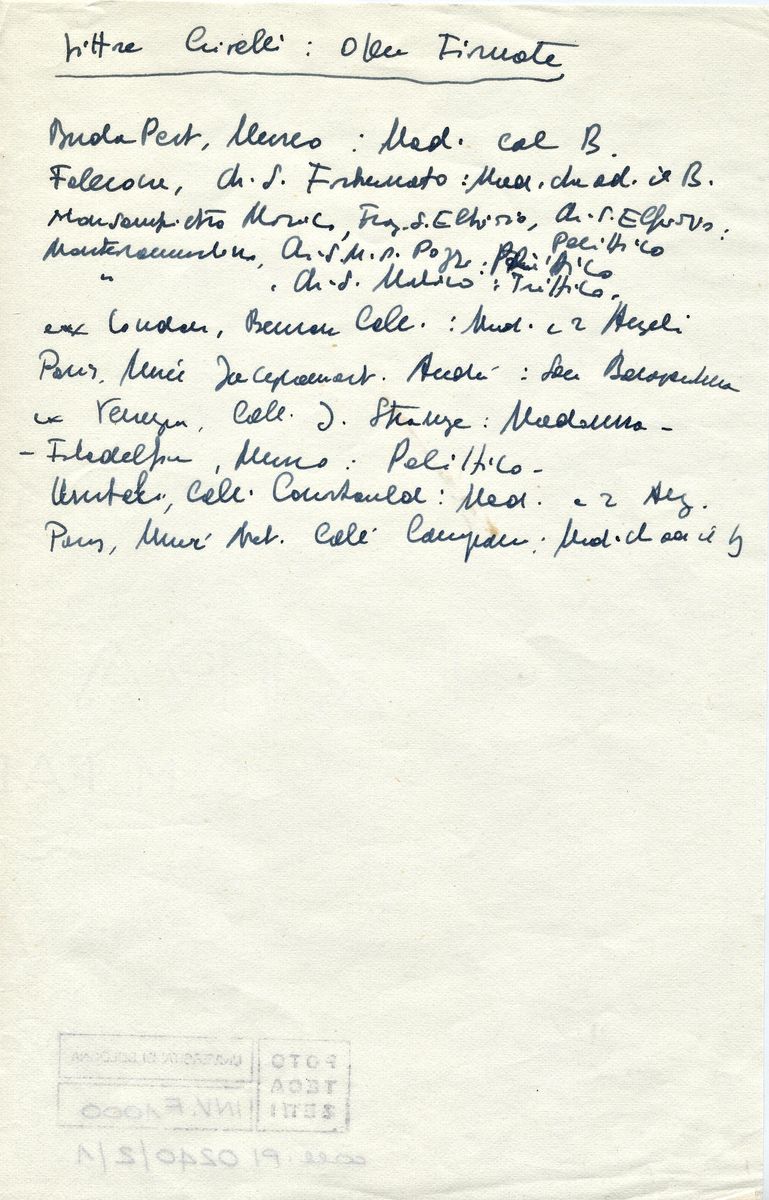 Vittore Crivelli : Opere Firmate
Budapest, Museo : Mad. col B.
Falerone, Ch. S. Fortunato : Mad. che ad. il B.
Monsampietro Morico, Fraz. S. Elpidio, Ch. S. Elpidio :
Polittico
Ch. S. M. d. Pozzo : Polittico
" , Ch. S. : Trittico.
ex London, Benson Coll. : Mad. e 2 Angeli
Paris, Musée Jacquemart. André : San Bonaventura
ex Venezia, Coll. J. Strange : Madonna -
- Filadelfia, Museo : Polittico -
Coll. Courtauld : Mad. e 2 Ang.
Paris, Musée Nat. Coll. Campana : Mad. che ad. il b
FOTO
TECA
ZERI
UNIVERSITÀ DI BOLOGNA
INV. F.1000
coll. PI 0240/2/1